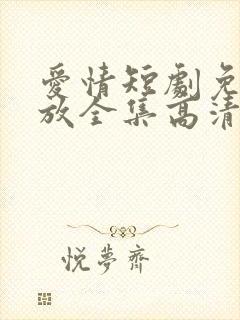 爱情短劇免
放全集高清
悦夢齋